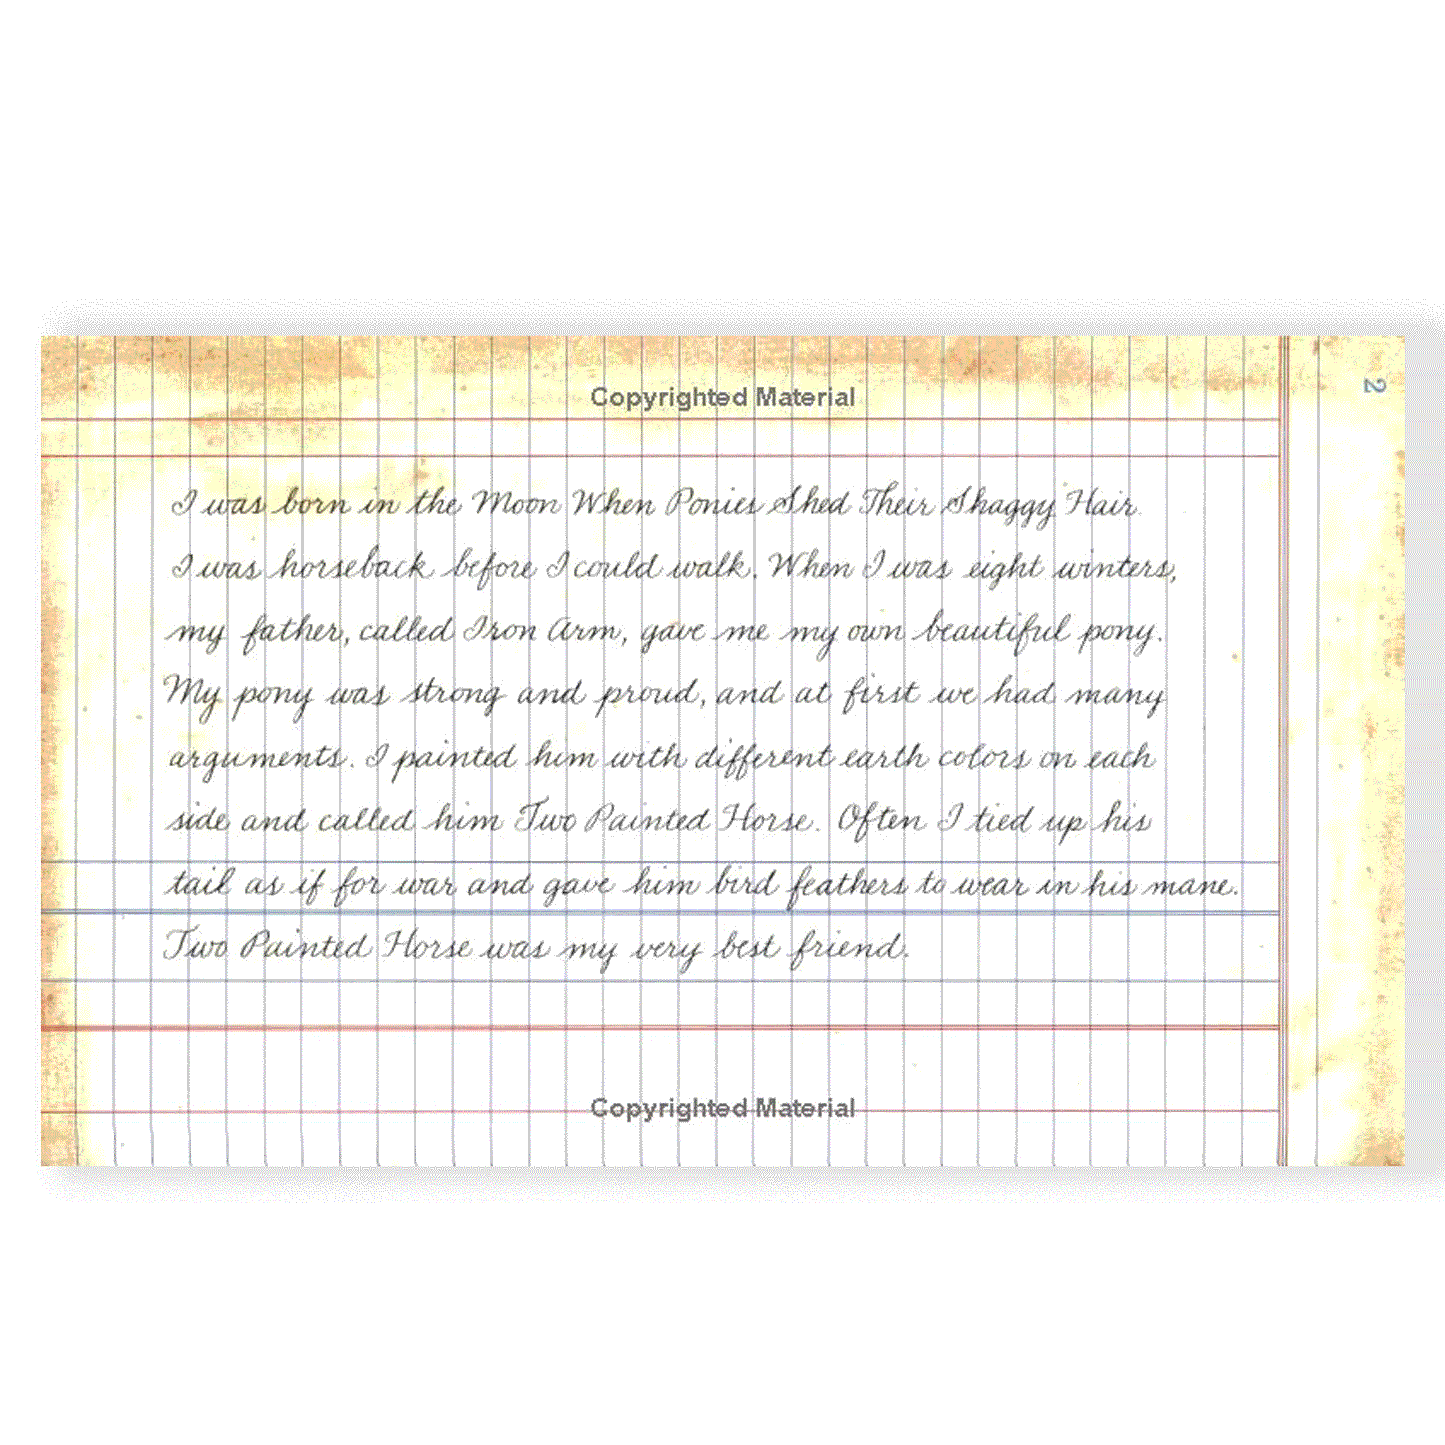 Copyrighted Material
2
I was born in the Moon When Ponies Shed Their Shaggy Hair.
I was horseback before I could walk. When I was eight winters,
my father, called Iron Arm, gave me my own beautiful pony.
My pony was strong and proud, and at first we had many
arguments. I painted him with different earth colors on each
side and called him Two Painted Horse. Often I tied up his
tail as if for war and gave him bird feathers to wear in his mane.
Two Painted Horse was my very best friend.
Copyrighted Material